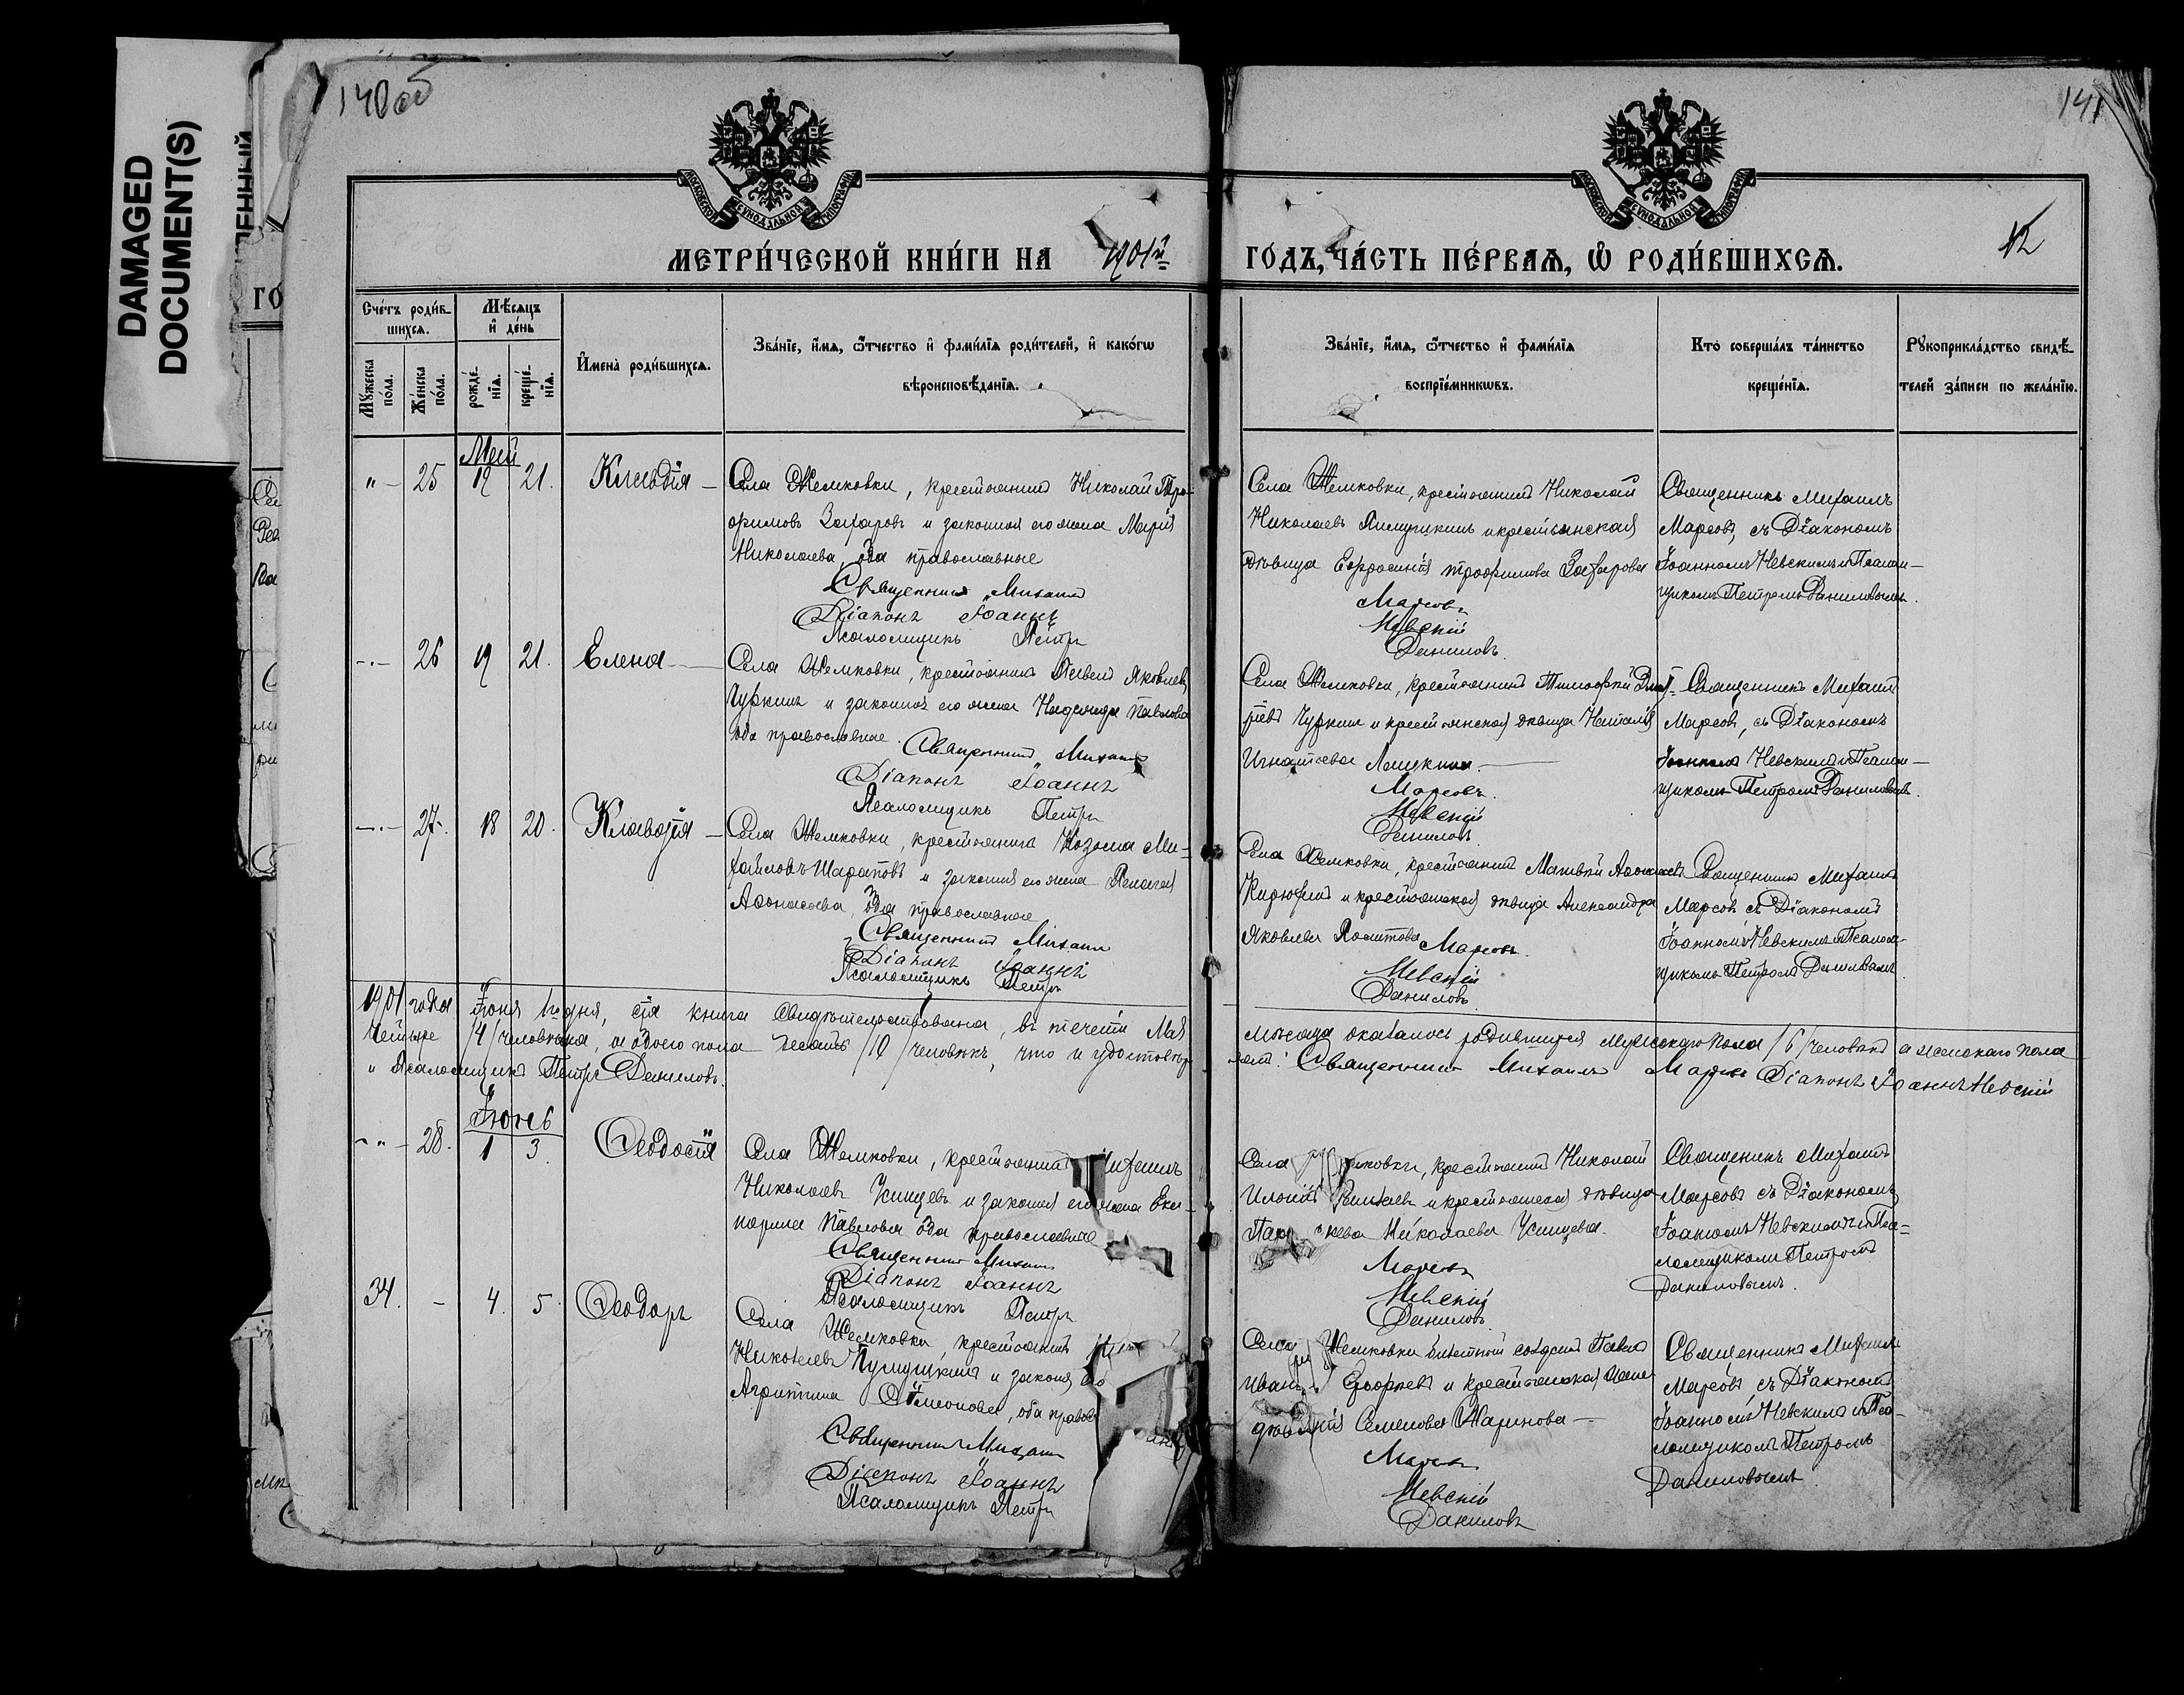 DAMAGED
DOCUMENT(S)
140об
141
12
МЕТРИ́ЧЕСКОЙ КНИ́ГИ НА 1901й ГОДЪ, ЧА́СТЬ ПЕ́РВАѦ, Ѡ РОДИ́ВШИХСѦ.
Сче́тъ роди́в-
шихсѧ.
Мѣ́сѧцъ
и҆ де́нь
Мꙋ́жеска
по́ла.
Же́нска
по́ла.
рожде́-
нїѧ.
креще́-
нїѧ.
И҆мена̀ роди́вшихсѧ.
Зва́нїе, и҆́мѧ, ѻ҆́тчество и҆ фами́лїѧ роди́телей, и҆ како́гѡ
вѣроисповѣ́данїѧ.
Зва́нїе, и҆́мѧ, ѻ҆́тчество и҆ фами́лїѧ
воспрїе́мникѡвъ.
Кто̀ соверша́лъ та́инство
креще́нїѧ.
Рꙋкоприкла́дство свидѣ́-
телей за́писи по жела́нїю.
Май
" - 25 19 21. Клавдія -
Села Жемковки, крестьянинъ Николай Тро-
фимовъ Захаровъ и законная его жена Марія
Николаева, оба православные
Священникъ Михаилъ
Діаконъ Іоаннъ
Псаломщикъ Петръ
Села Жемковки, крестьянинъ Николай
Николаевъ и крестьянская
дѣвица Евфросинія Трофимова Захарова
Марсовъ
Невскій
Даниловъ.
Священникъ Михаилъ
Марсовъ, съ Діакономъ
Іоанномъ Невскимъ и Псалом-
щикомъ Петромъ Даниловымъ.
26 19 21. Елена
Села Жемковки, крестьянинъ Павелъ Яковлевъ
Чуркинъ и законная его жена Надежда Павлова
оба православные.
Священникъ Михаилъ
Діаконъ Іоаннъ
Псаломщикъ Петръ
Села Жемковки, крестьянинъ Тимофей Дмит-
ріевъ Чуркинъ и крестьянская дѣвица Наталія
Игнатьева
Марсовъ.
Невскій
Даниловъ.
Священникъ Михаилъ
Марсовъ, съ Діакономъ
Іоанномъ Невскимъ и Псалом-
щикомъ Петромъ Даниловымъ.
27. 18 20. Клавдія -
Села Жемковки, крестьянинъ Козма Ми-
хайловъ Шараповъ и законная его жена Пелагея
Афонасьева, оба православные
Священникъ Михаилъ
Діаконъ Іоаннъ
Псаломщикъ Петръ
Села Жемковки, крестьянинъ Матвей Афонасьевъ
и крестьянская дѣвица Александра
Яковлева
Марсовъ.
Невскій
Даниловъ
Священникъ Михаилъ
Марсовъ съ Діакономъ
Іоанномъ Невскимъ и Псалом-
щикомъ Петромъ Даниловымъ
1901 года Іюня 1го дня, сія книга свидѣтельствована, въ теченіи Мая мѣсяца оказалось родившихся мужескаго пола /6/ человѣкъ а женскаго пола
четыре /4/ человѣка, а обоего пола десять /10/ человѣкъ, что и удостовѣр-яемъ: Священникъ Михаилъ Марсовъ Діаконъ Іоаннъ Невскій
и Псаломщикъ Петръ Даниловъ.
Іюнь
" - 28. 1 3. Ѳеодосія
Села Жемковки, крестьянинъ Михаилъ
Николаевъ Усищевъ и законная его жена Ека-
Павлова оба православные
Священникъ Михаилъ
Діаконъ Іоаннъ
Псаломщикъ Петръ
Села крестьянинъ Николай
и крестьянская дѣвица
Николаева Усищева.
Марсовъ
Невскій
Даниловъ.
Священникъ Михаилъ
Марсовъ съ Діакономъ
Іоанномъ Невскимъ и Пса-
ломщикомъ Петромъ
Даниловымъ.
34. - 4. 5. Ѳеодоръ
Села Жемковки, крестьянинъ
Николаевъ и законная его
Агриппина Симеонова, оба правос
Священникъ Михаилъ
Діаконъ Іоаннъ
Псаломщикъ Петръ
Села Жемковки билетный солдатъ Павелъ
и крестьянская
Семенова Жаринова
Марсовъ
Невскій
Даниловъ
Священникъ Михаилъ
Марсовъ съ Діакономъ
Іоанномъ Невскимъ и Пса-
ломщикомъ Петромъ
Даниловымъ